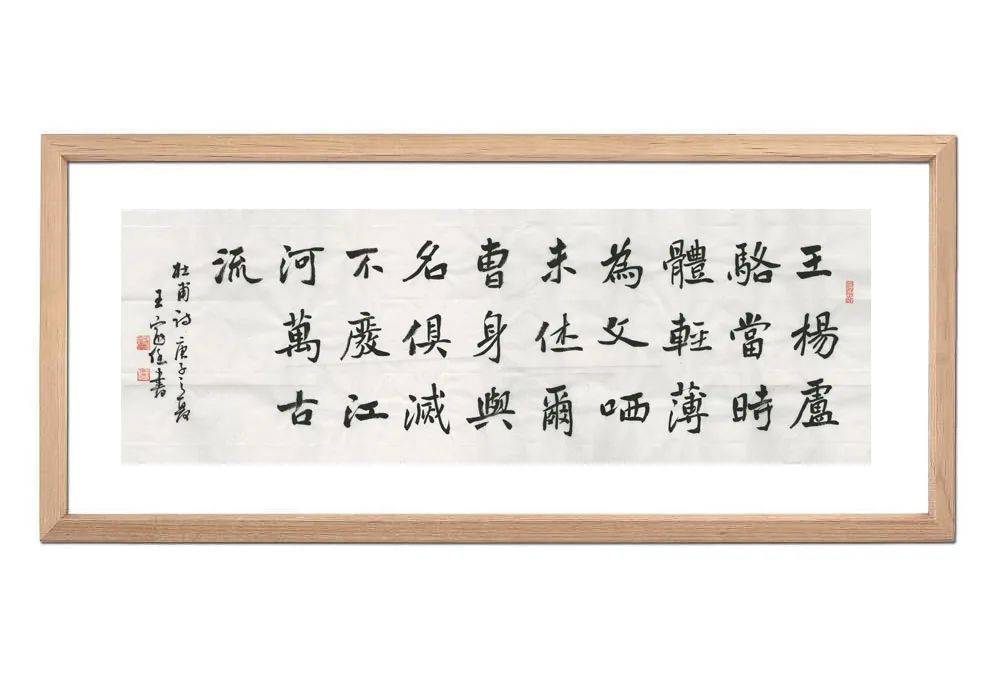 王楊盧
駱當時
體輕薄
為文哂
未休爾
曹身與
名俱滅
不廢江
河萬古
流
杜甫詩庚子之夏
王家書